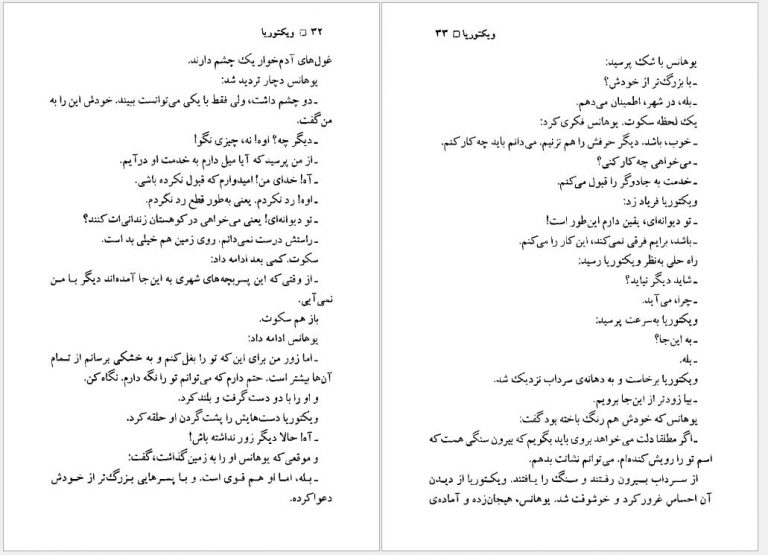 ۳۲ □ ویکتوریا
غول‌های آدم‌خوار یک چشم دارند.
یوهانس دچار تردید شد:
ـ دو چشم داشت، ولی فقط با یکی می‌توانست ببیند. خودش این را به
من گفت.
ـ دیگر چه؟ اوه! نه، چیزی نگو!
ـ از من پرسید که آیا میل دارم به خدمت او درآیم.
ـ آه! خدای من! امیدوارم که قبول نکرده باشی.
ـ اوه! رد نکردم. یعنی به‌طور قطع رد نکردم.
ـ تو دیوانه‌ای! یعنی می‌خواهی در کوهستان زندانی‌ات کنند؟
ـ راستش درست نمی‌دانم. روی زمین هم خیلی بد است.
سکوت. کمی بعد ادامه داد:
ـ از وقتی که این پسربچه‌های شهری به این‌جا آمده‌اند دیگر با من
نمی‌آیی.
باز هم سکوت.
یوهانس ادامه داد:
ـ اما زور من برای این که تو را بغل کنم و به خشکی برسانم از تمام
آن‌ها بیشتر است. حتم دارم که می‌توانم تو را نگه دارم. نگاه کن.
و او را با دو دست گرفت و بلند کرد.
ویکتوریا دست‌هایش را پشت گردن او حلقه کرد.
ـ آه! حالا دیگر زور نداشته باش!
و موقعی که یوهانس او را به زمین گذاشت، گفت:
ـ بله، اما او هم قوی است. و با پسرهایی بزرگ‌تر از خودش
دعوا کرده.
ویکتوریا □ ۳۳
یوهانس با شک پرسید:
ـ با بزرگ‌تر از خودش؟
ـ بله، در شهر، اطمینان می‌دهم.
یک لحظه سکوت. یوهانس فکری کرد:
ـ خوب، باشد. دیگر حرفش را هم نزنیم. می‌دانم باید چه کار کنم.
ـ می‌خواهی چه کار کنی؟
ـ خدمت به جادوگر را قبول می‌کنم.
ویکتوریا فریاد زد:
ـ تو دیوانه‌ای، یقین دارم این‌طور است!
ـ باشد، برایم فرقی نمی‌کند، این کار را می‌کنم.
راه حلی به‌نظر ویکتوریا رسید:
ـ شاید دیگر نیاید؟
ـ چرا، می‌آید.
ویکتوریا به‌سرعت پرسید:
ـ به این‌جا؟
ـ بله.
ویکتوریا برخاست و به دهانه‌ی سرداب نزدیک شد.
ـ بیا زودتر از این‌جا برویم.
یوهانس که خودش هم رنگ باخته بود گفت:
ـ اگر مطلقا دلت می‌خواهد بروی باید بگویم که بیرون سنگی هست که
اسم تو را رویش کنده‌ام. می‌توانم نشانت بدهم.
از سرداب بیرون رفتند و سنگ را یافتند. ویکتوریا از دیدن
آن احساس غرور کرد و خوشوقت شد. یوهانس، هیجان‌زده و آماده‌ی